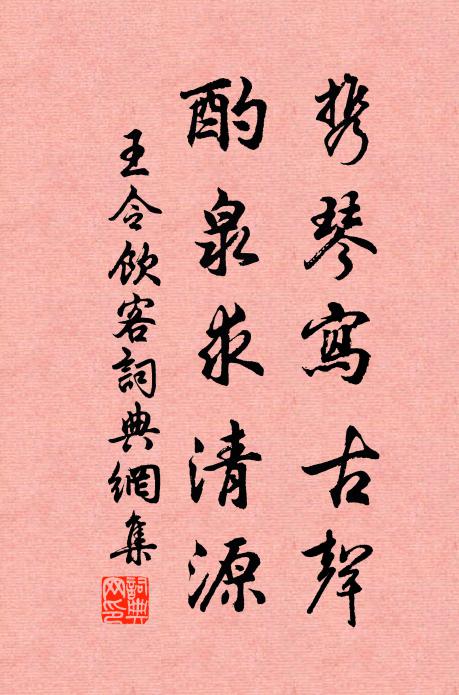 携琴寫古聲
酌泉求清源
王令飲客詞典網集
詞典
网印